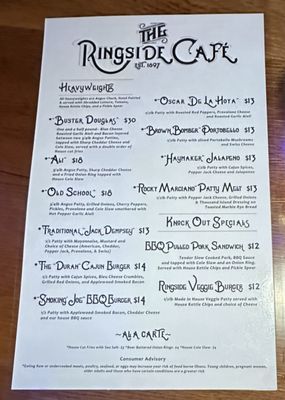 THE
RINGSIDE CAFÉ
EST. 1897
HEAVYWEIGHTS
All heavyweights are Angus Chuck, Hand Pattied
& served with Shredded Lettuce, Tomato,
House Kettle Chips, and a Pickle Spear
"BUSTER DOUGLAS" $30
One and a half pound- Blue Cheese
Roasted Garlic Aioli and Bacon layered
between two 3/4lb Angus Patties,
topped with Sharp Cheddar Cheese and
Cole Slaw, served with a double order of
House cut fries
"ALI" $18
3/4lb Angus Patty, Sharp Cheddar Cheese
and a Fried Onion Ring topped with
House Cole Slaw
"OLD SCHOOL" $18
3/4lb Angus Patty, Grilled Onions, Cherry Peppers,
Pickles, Provolone and Cole Slaw smothered with
Hot Pepper Garlic Aioli
"TRADITIONAL JACK DEMPSEY" $13
1/2 Patty with Mayonnaise, Mustard and
Choice of Cheese (American, Cheddar,
Pepper Jack, Provolone, & Swiss)
"THE "DURAN" CAJUN BURGER $14
1/2 Patty with Cajun Spices, Bleu Cheese Crumbles,
Grilled Red Onions, and Applewood Smoked Bacon
"SMOKING "JOE" BBQ BURGER $14
1/2 Patty with Applewood Smoked Bacon, Cheddar Cheese
and our house BBQ sauce
"OSCAR DE LA HOYA" $13
1/2 Patty with Roasted Red Peppers, Provolone Cheese
and Roasted Garlic Aioli
"BROWN BOMBER" PORTOBELLO $13
1/2lb Patty with Sliced Portabello Mushrooms
and Swiss Cheese
"HAYMAKER" JALAPENO $13
1/2lb Patty with Cajun Spices,
Pepper Jack Cheese and Jalapenos
"ROCKY MARCIANO" PATTY MELT $13
1/2lb Patty with Pepper Jack Cheese, Grilled Onions
& Thousand Island Dressing on
Toasted Marble Rye Bread
KNOCK OUT SPECIALS
BBQ PULLED PORK SANDWICH $12
Tender Slow Cooked Pork, BBQ Sauce
and topped with Cole Slaw and an Onion Ring.
Served with House Kettle Chips and Pickle Spear
RINGSIDE VEGGIE BURGER $12
1/2lb Made in House Veggie Patty served with
House Kettle Chips and choice of Cheese
~ALA CARTE~
*House Cut Fries with Sea Salt- $3 *Beer Battered Onion Rings- $4 *House Cole Slaw- $3
Consumer Advisory
*Eating Raw or undercooked meats, poultry, seafood, or eggs may increase your risk of food borne illness. Young children, pregnant women,
older adults and those who have certain conditions are a greater risk